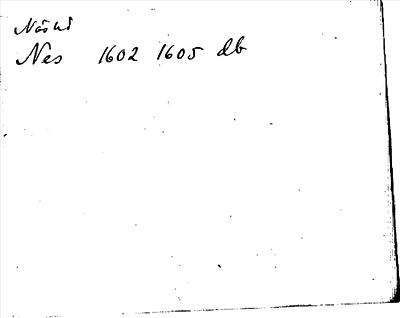 Näshl
Nes 1602 1605 db